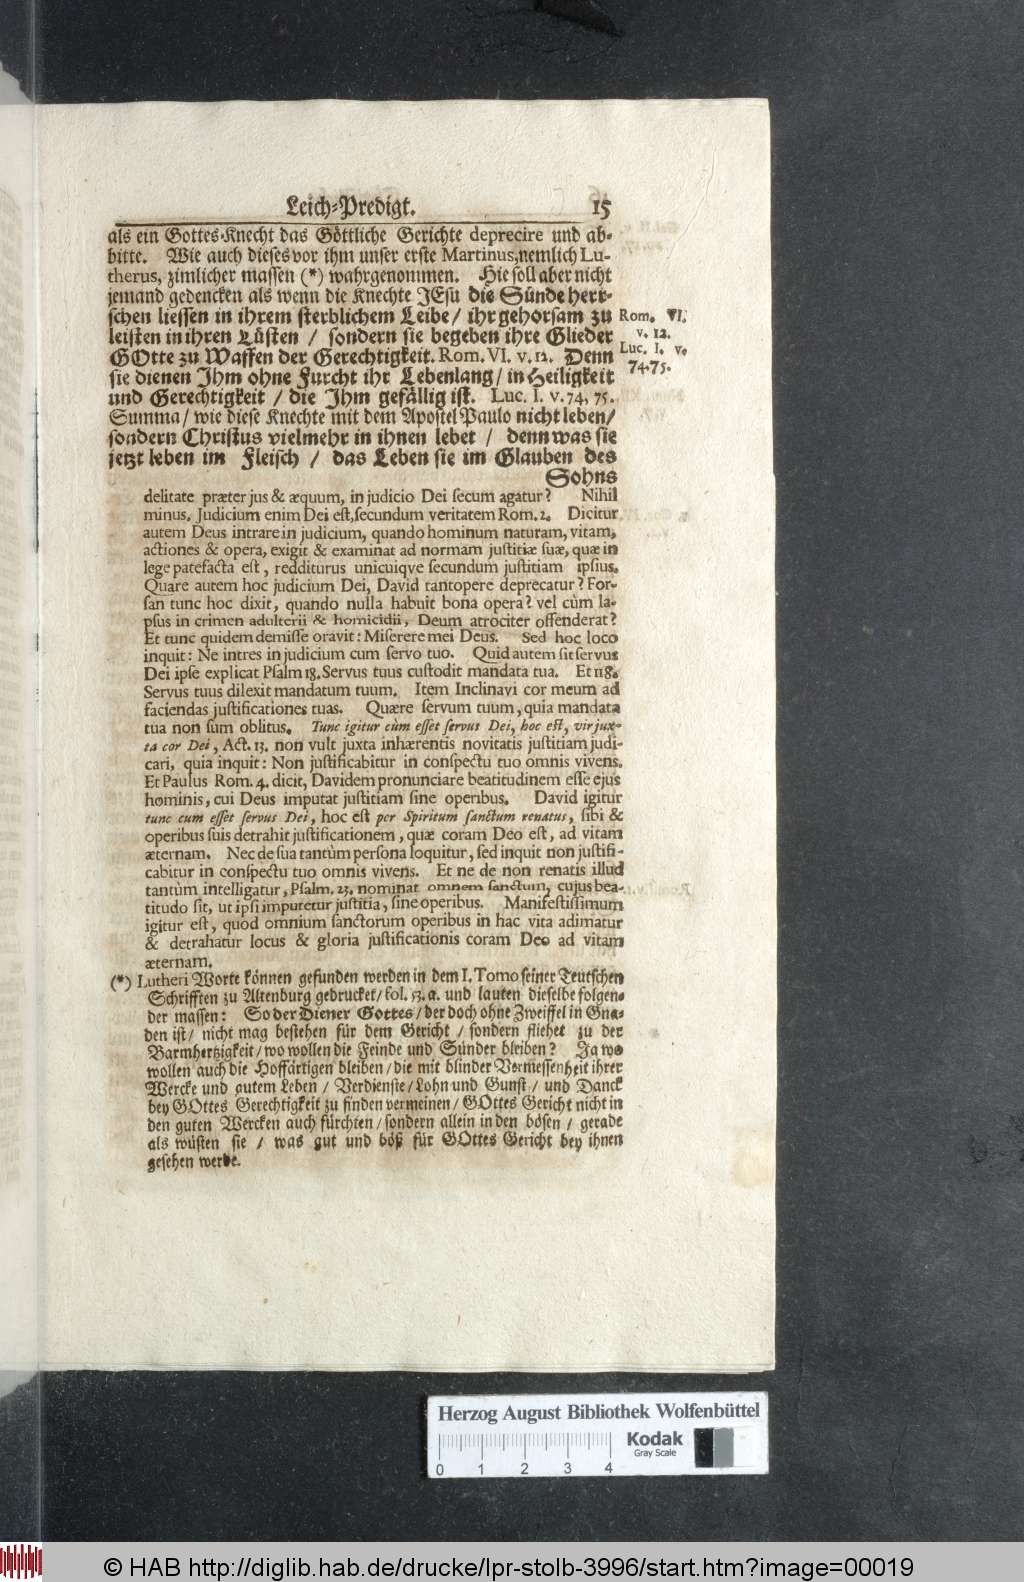 Leich-Predigt. 15
als ein Gottes-Knecht das Göttliche Gerichte deprecire und ab-
bitte. Wie auch dieses vor ihm unser erste Martinus, nemlich Lu-
therus, zimlicher massen (*) wahrgenommen. Hie soll aber nicht
jemand gedencken als wenn die Knechte JEsu die Sünde herr-
schen liessen in ihrem sterblichem Leibe / ihr gehorsam zu
leisten in ihren Lüsten / sondern sie begeben ihre Glieder
GOtte zu Waffen der Gerechtigkeit. Rom. VI. v. 12. Denn
sie dienen Ihm ohne Furcht ihr Lebenlang / in Heiligkeit
und Gerechtigkeit / die Ihm gefällig ist. Luc. I. v. 74, 75.
Summa / wie diese Knechte mit dem Apostel Paulo nicht leben /
sondern Christus vielmehr in ihnen lebet / denn was sie
jetzt leben im Fleisch / das Leben sie im Glauben des
Sohns
Rom. VI.
v. 12.
Luc. I. v.
74.75.
delitate præter jus & æquum, in judicio Dei secum agatur? Nihil
minus. Judicium enim Dei est, secundum veritatem Rom. 2. Dicitur
autem Deus intrare in judicium, quando hominum naturam, vitam,
actiones & opera, exigit & examinat ad normam justitiæ suæ, quæ in
lege patefacta est, redditurus unicuiqve secundum justitiam ipsius.
Quare autem hoc judicium Dei, David tantopere deprecatur? For-
san tunc hoc dixit, quando nulla habuit bona opera? vel cùm la-
psus in crimen adulterii & homicidii, Deum atrociter offenderat?
Et tunc quidem demisse oravit: Miserere mei Deus. Sed hoc loco
inquit: Ne intres in judicium cum servo tuo. Quid autem sit servus
Dei ipse explicat Psalm 18. Servus tuus custodit mandata tua. Et 118.
Servus tuus dilexit mandatum tuum. Item Inclinavi cor meum ad
faciendas justificationes tuas. Quære servum tuum, quia mandata
tua non sum oblitus. Tunc igitur cùm esset servus Dei, hoc est, vir jux-
ta cor Dei, Act. 13. non vult juxta inhærentis novitatis justitiam judi-
cari, quia inquit: Non justificabitur in conspectu tuo omnis vivens.
Et Paulus Rom. 4. dicit, Davidem pronunciare beatitudinem esse ejus
hominis, cui Deus imputat justitiam sine operibus. David igitur
tunc cum esset servus Dei, hoc est per Spiritum sanctum renatus, sibi &
operibus suis detrahit justificationem, quæ coram Deo est, ad vitam
æternam. Nec de sua tantùm persona loquitur, sed inquit non justifi-
cabitur in conspectu tuo omnis vivens. Et ne de non renatis illud
tantùm intelligatur, Psalm. 23. nominat omnem sanctum, cujus bea-
titudo sit, ut ipsi imputetur justitia, sine operibus. Manifestissimum
igitur est, quod omnium sanctorum operibus in hac vita adimatur
& detrahatur locus & gloria justificationis coram Deo ad vitam
æternam.
(*) Lutheri Worte können gefunden werden in dem I. Tomo seiner Teutschen
Schrifften zu Altenburg gedrucket / fol. 53. a. und lauten dieselbe folgen-
der massen: So der Diener Gottes / der doch ohne Zweiffel in Gna-
den ist / nicht mag bestehen für dem Gericht / sondern fliehet zu der
Barmhertzigkeit / wo wollen die Feinde und Sünder bleiben? Ja wo
wollen auch die Hoffärtigen bleiben / die mit blinder Vermessenheit ihrer
Wercke und gutem Leben / Verdienste / Lohn und Gunst / und Danck
bey GOttes Gerechtigkeit zu finden vermeinen / GOttes Gericht nicht in
den guten Wercken auch fürchten / sondern allein in den bösen / gerade
als wüsten sie / was gut und böß für GOttes Gericht bey ihnen
gesehen werde.
Herzog August Bibliothek Wolfenbüttel
Kodak
Gray Scale
0 1 2 3 4
© HAB http://diglib.hab.de/drucke/lpr-stolb-3996/start.htm?image=00019